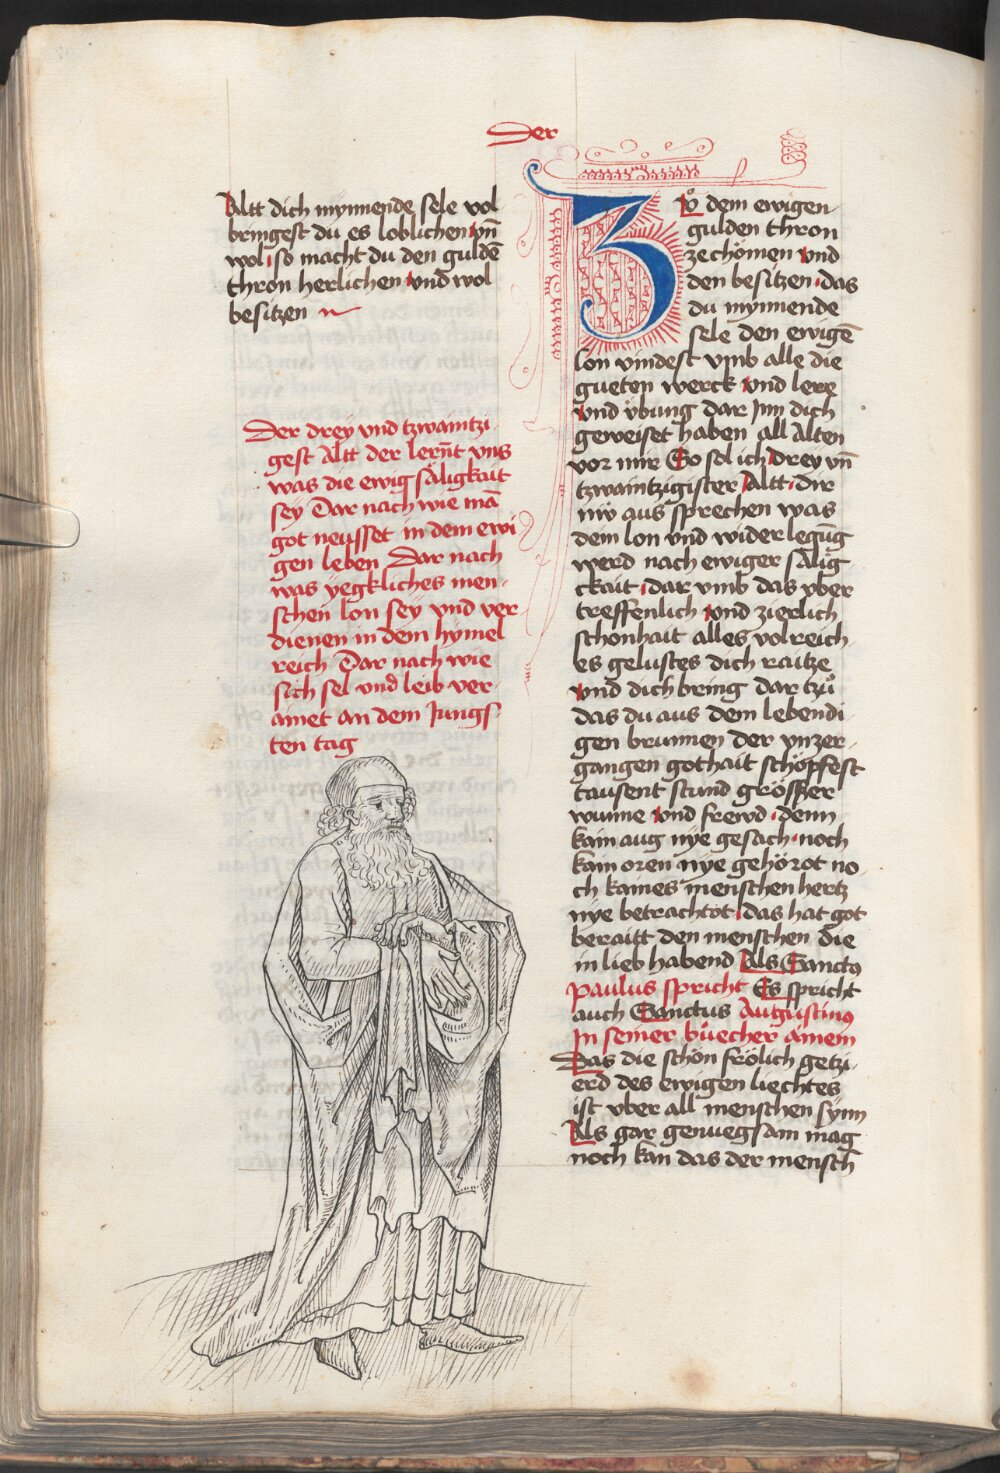 Der
Altt dich mynnende sele vol
bringest du es loblichen vn̄
wol so macht du den guldē
thron herlichen vnd wol
besitzen
Der drey vnd tzwaintzi
gest Altt der lernt̄ vns
was die ewig säligkait
sey Dar nach wie mā
got neusset in dem ewi
gen leben Dar nach
was yegkliches men
schen lon sey vnd ver
dienen in dem hymel
reich Dar nach wie
sich sel vnd leib ver
ainet an dem Jungs
ten tag
Zů dem ewigen
gulden thron
ze chömen vnd
den besitzen das
du mynnende
sele den ewigē
lon vindest vmb alle die
gueten werck vnd lere
vnd vbung dar Inn dich
geweiset haben all Alten
vor mir So sol ich drey vn̄
tzwaintzigister Altt dir
nw aus sprechen was
dem lon vnd wider legūg
werd nach ewiger sälig
ckait dar vmb das vber
treffenlich vnd zierlich
schonhait alles volreich
es gelustes dich raitze
vnd dich bring dar tzů
das du aus dem lebendi
gen brunnen der vnzer
gangen gothait schöpfest
tausent stund grösser
wunne vnd frewd denn
kain aug nye gesach noch
kain oren nye gehörot no
ch kaines menschen hertz
nye betrachtot das hat got
beraitt den menschen die
in lieb habend Als Sanctꝯ
paulus spricht Es spricht
auch Sanctus Augustinꝯ
In seiner büecher ainem
Das die schön frölich getzi
erd des ewigen liechtes
ist vber all menschen synn
Als gar genuegsam mag
noch kan das der mensch